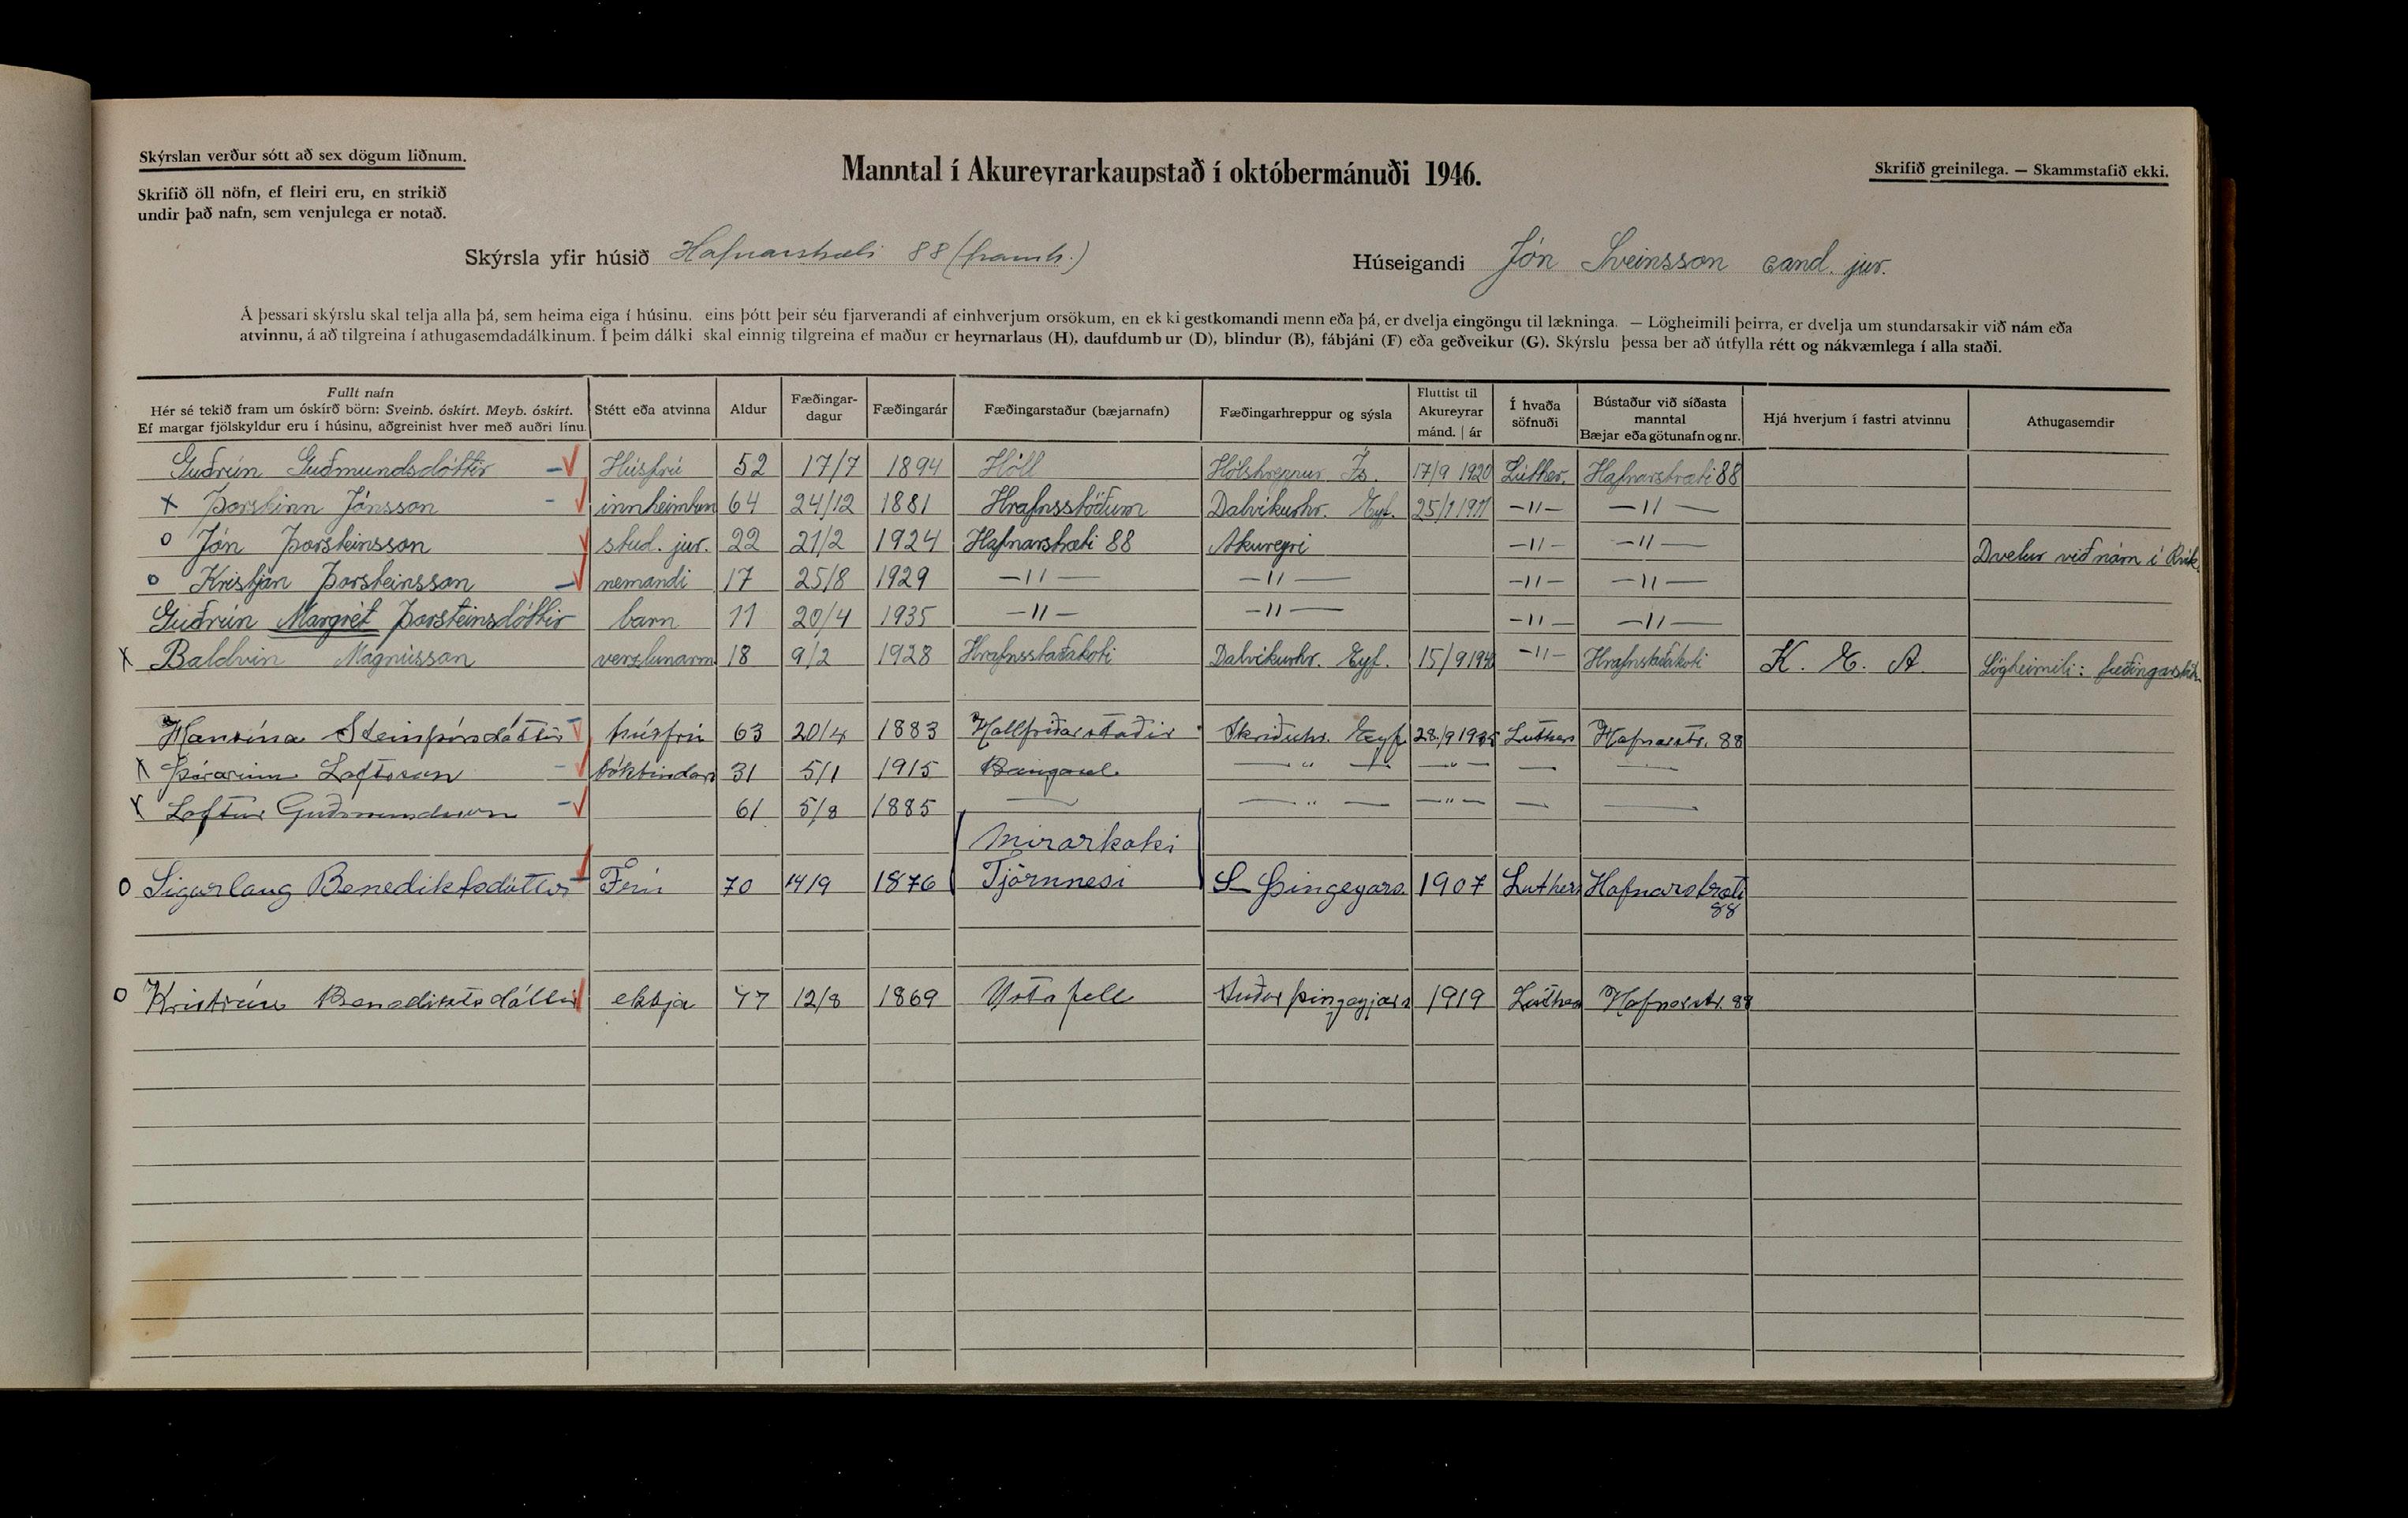 Skýrslan verður sótt að sex dögum liðnum.
Skrifið öll nöfn, ef fleiri eru, en strikið
undir það nafn, sem venjulega er notað.
Manntal í Akureyrarkaupstað í októbermánuði 1946.
Skrifið greinilega. — Skammstafið ekki.
Skýrsla yfir húsið Hafnarstræti 88 (framh.) Húseigandi Jón Sveinsson cand. jur.
Á þessari skýrslu skal telja alla þá, sem heima eiga í húsinu, eins þótt þeir séu fjarverandi af einhverjum orsökum, en ekki gestkomandi menn eða þá, er dvelja eingöngu til lækninga. — Lögheimili þeirra, er dvelja um stundarsakir við nám eða
atvinnu, á að tilgreina í athugasemdadálkinum. Í þeim dálki skal einnig tilgreina ef maður er heyrnarlaus (H), daufdumbur (D), blindur (B), fábjáni (F) eða geðveikur (G). Skýrslu þessa ber að útfylla rétt og nákvæmlega í alla staði.
Fullt nafn
Hér sé tekið fram um óskírð börn: Sveinb. óskírt. Meyb. óskírt.
Ef margar fjölskyldur eru í húsinu, aðgreinist hver með auðri línu.
Stétt eða atvinna
Aldur
Fæðingar-
dagur
Fæðingarár
Fæðingarstaður (bæjarnafn)
Fæðingarhreppur og sýsla
Fluttist til
Akureyrar
mánd. | ár
Í hvaða
söfnuði
Bústaður við síðasta
manntal
Bæjar eða götunafn og nr.
Hjá hverjum í fastri atvinnu
Athugasemdir
Guðrún Guðmundsdóttir Húsfrú 52 17/7 1894 Hóll Hólshreppur Ís. 17/9 1920 Lúther. Hafnarstræti 88
x Þorsteinn Jónsson innheimtum 64 24/12 1881 Hrafnsstöðum Dalvíkurhr. Eyf. —11— —11—
o Jón Þorsteinsson stud. jur. 22 21/2 1924 Hafnarstræti 88 Akureyri —11— —11— Dvelur við nám í Rvík.
o Kristján Þorsteinsson nemandi 17 25/8 1929 —11— —11— —11— —11—
Guðrún Margrét Þorsteinsdóttir barn 11 20/4 1935 —11— —11— —11— —11—
x Baldvin Magnússon verzlunarm 18 9/2 1928 Hrafnsstaðakoti Dalvíkurhr. Eyf. —11— Hrafnsstaðakoti K. E. A. Lögheimili:
Hansína Steinþórsdóttir húsfrú 63 20/4 1883 Hallfríðarstaðir Skriðuhr. Eyf. Luthers Hafnarstr. 88
x Þórarinn Loftsson bókbindari 31 5/1 1915 — " — — " — — —
x Loftur Guðmundsson 61 5/8 1885 — — " — — " — — —
o Sigurlaug Benediktsdóttir Frú 70 14/9 1876 Mýrarkoti
Tjörnnesi S-Þingeyars. 1907 Luthers Hafnarstræti
88
o Kristrún Benediktsdóttir ekkja 77 12/8 1869 Ystafell Suður Þingeyjars 1919 Luthers Hafnarstr. 88